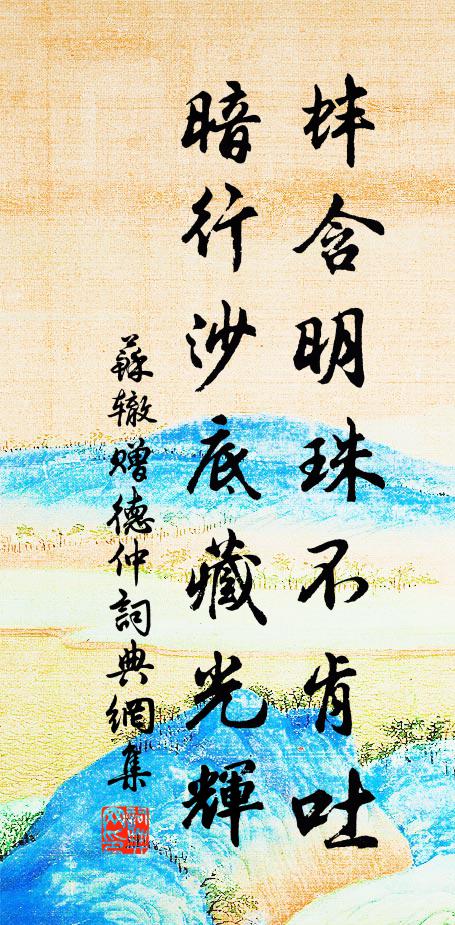 蚌含明珠不肯吐
暗行沙底藏光輝
蘇轍贈德仲詞典網集